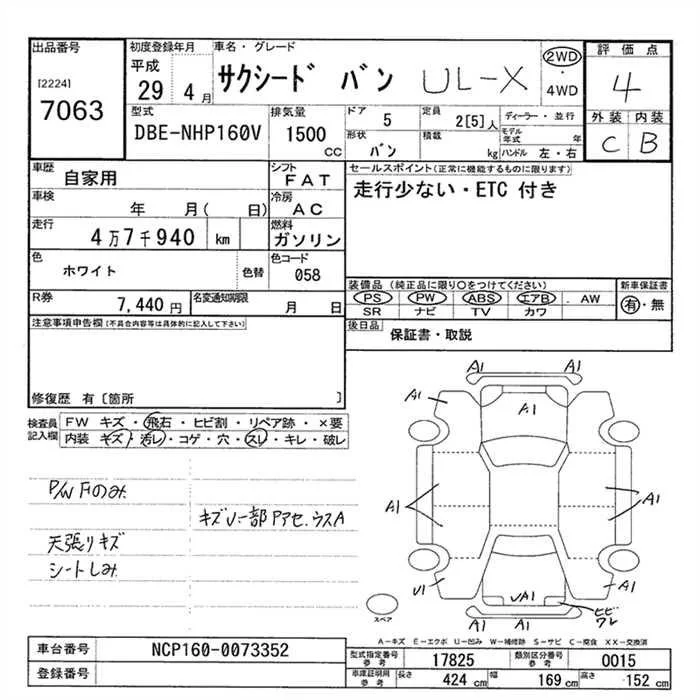 出品番号
[2224]
7063
初度登録年月
平成
29 4月
車名・グレード
サクシード バン UL-X
2WD
・
4WD
評価点
4
外装 内装
C B
型式
DBE-NHP160V
排気量
1500
CC
ドア
5
定員
2[5]人
ディーラー・並行
形状
バン
積載
kg
モデル年式
年
ハンドル 左・右
車歴
自家用
シフト
FAT
車検
年 月( 日)
冷房
AC
走行
4万7千940 km
燃料
ガソリン
色
ホワイト
色替
色コード
058
R券
7,440円
名変通知期限
月 日
セールスポイント(正常に機能するものに限ります)
走行少ない・ETC 付き
装備品(純正品に限り○をつけてください)
PS PW ABS エアB . AW
SR ナビ TV カワ
新車保証書
有・無
後日品
保証書・取説
注意事項申告欄(不具合内容等は具体的に記入して下さい)
修復歴 有〔箇所 〕
検査員
記入欄
FW キズ・飛石・ヒビ割・リペア跡・×要
内装 キズ・汚レ・コゲ・穴・スレ・キレ・破レ
P/W Fのみ
天張りキズ
シートしみ
A1 A1
A1
A1
A1
A1
U1
A1
UA1
ヒビ
ワレ
A1 A1
スペア
A-キズ E-エクボ U-凹み W-補修跡 S-サビ C-腐食 XX-交換済
車台番号
NCP160-0073352
登録番号
型式指定番号
参考
17825
類別区分番号
参考
0015
車庫証明用
参考
長さ
424 cm
幅
169 cm
高さ
152 cm